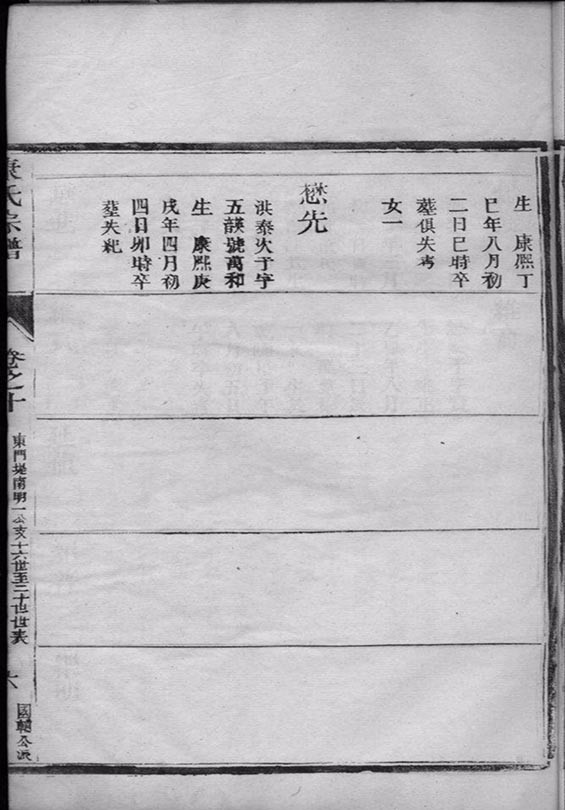 生　康熙丁
巳年八月初
二日巳時卒
墓俱失考
女一
懋先
洪泰次子字
五韺號萬和
生　康熙庚
戌年四月初
四日卯時卒
墓失紀
氏宗譜
卷之十
東門堤南明一公支十六世至二十世世表
六
國公派